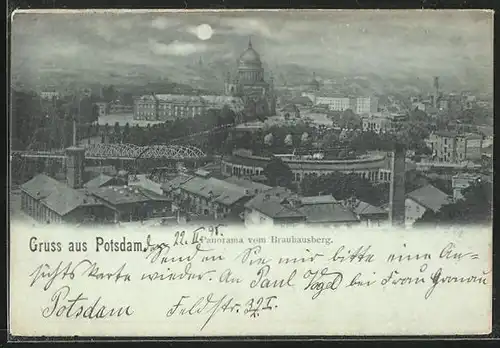 Gruss aus Potsdam, den 22. II. 98.
Panorama vom Brauhausberg.
Senden Sie mir bitte eine An-
sichts Karte wieder. An Paul Vogel bei Frau Gronau
Potsdam Feldstr. 32 I.